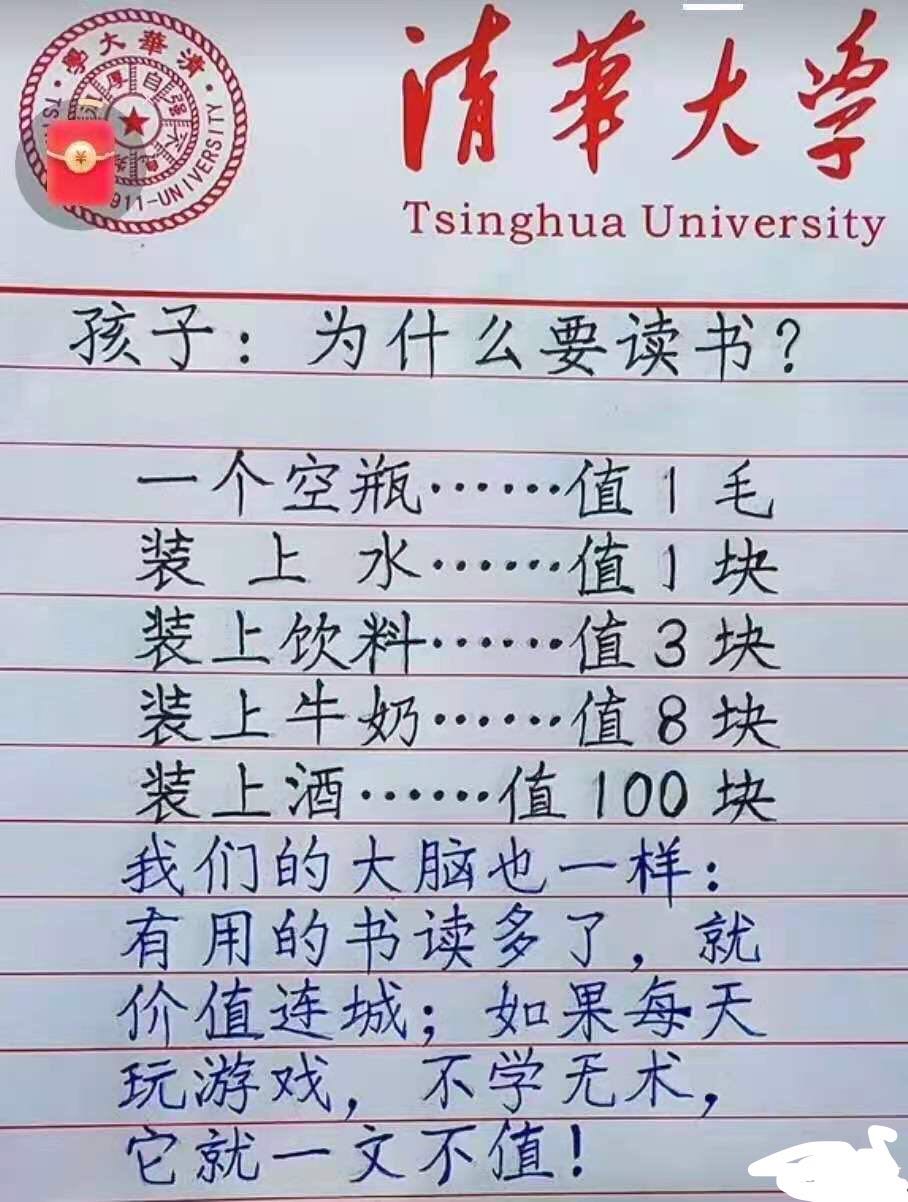 清華大学
Tsinghua University
清華大學
自强不息
厚
1911-UNIVERSITY
¥
孩子：为什么要读书？
一个空瓶……值1毛
装上水……值1块
装上饮料……值3块
装上牛奶……值8块
装上酒……值100块
我们的大脑也一样：
有用的书读多了，就
价值连城；如果每天
玩游戏，不学无术，
它就一文不值！